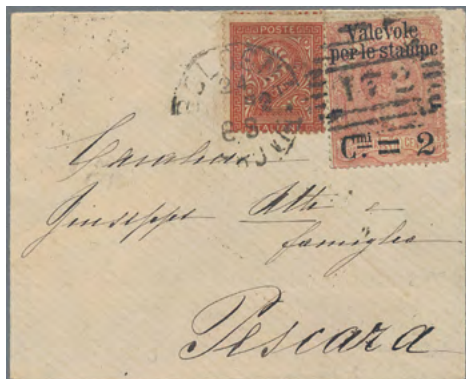 POSTE
Valevole
per le stampe
173
C.mi 2
Giuseppe Atti e
famiglia
Pescara